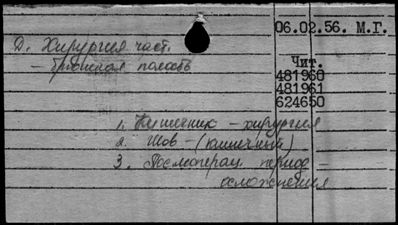 06.02.56. М.Г.
Д. Хирургия част.
— брюшная полость
Чит.
481960
481961
624650
1. Кишечник – хирургия
2. Шов – (кишечный)
3. Послеоперац. период –
осложнения